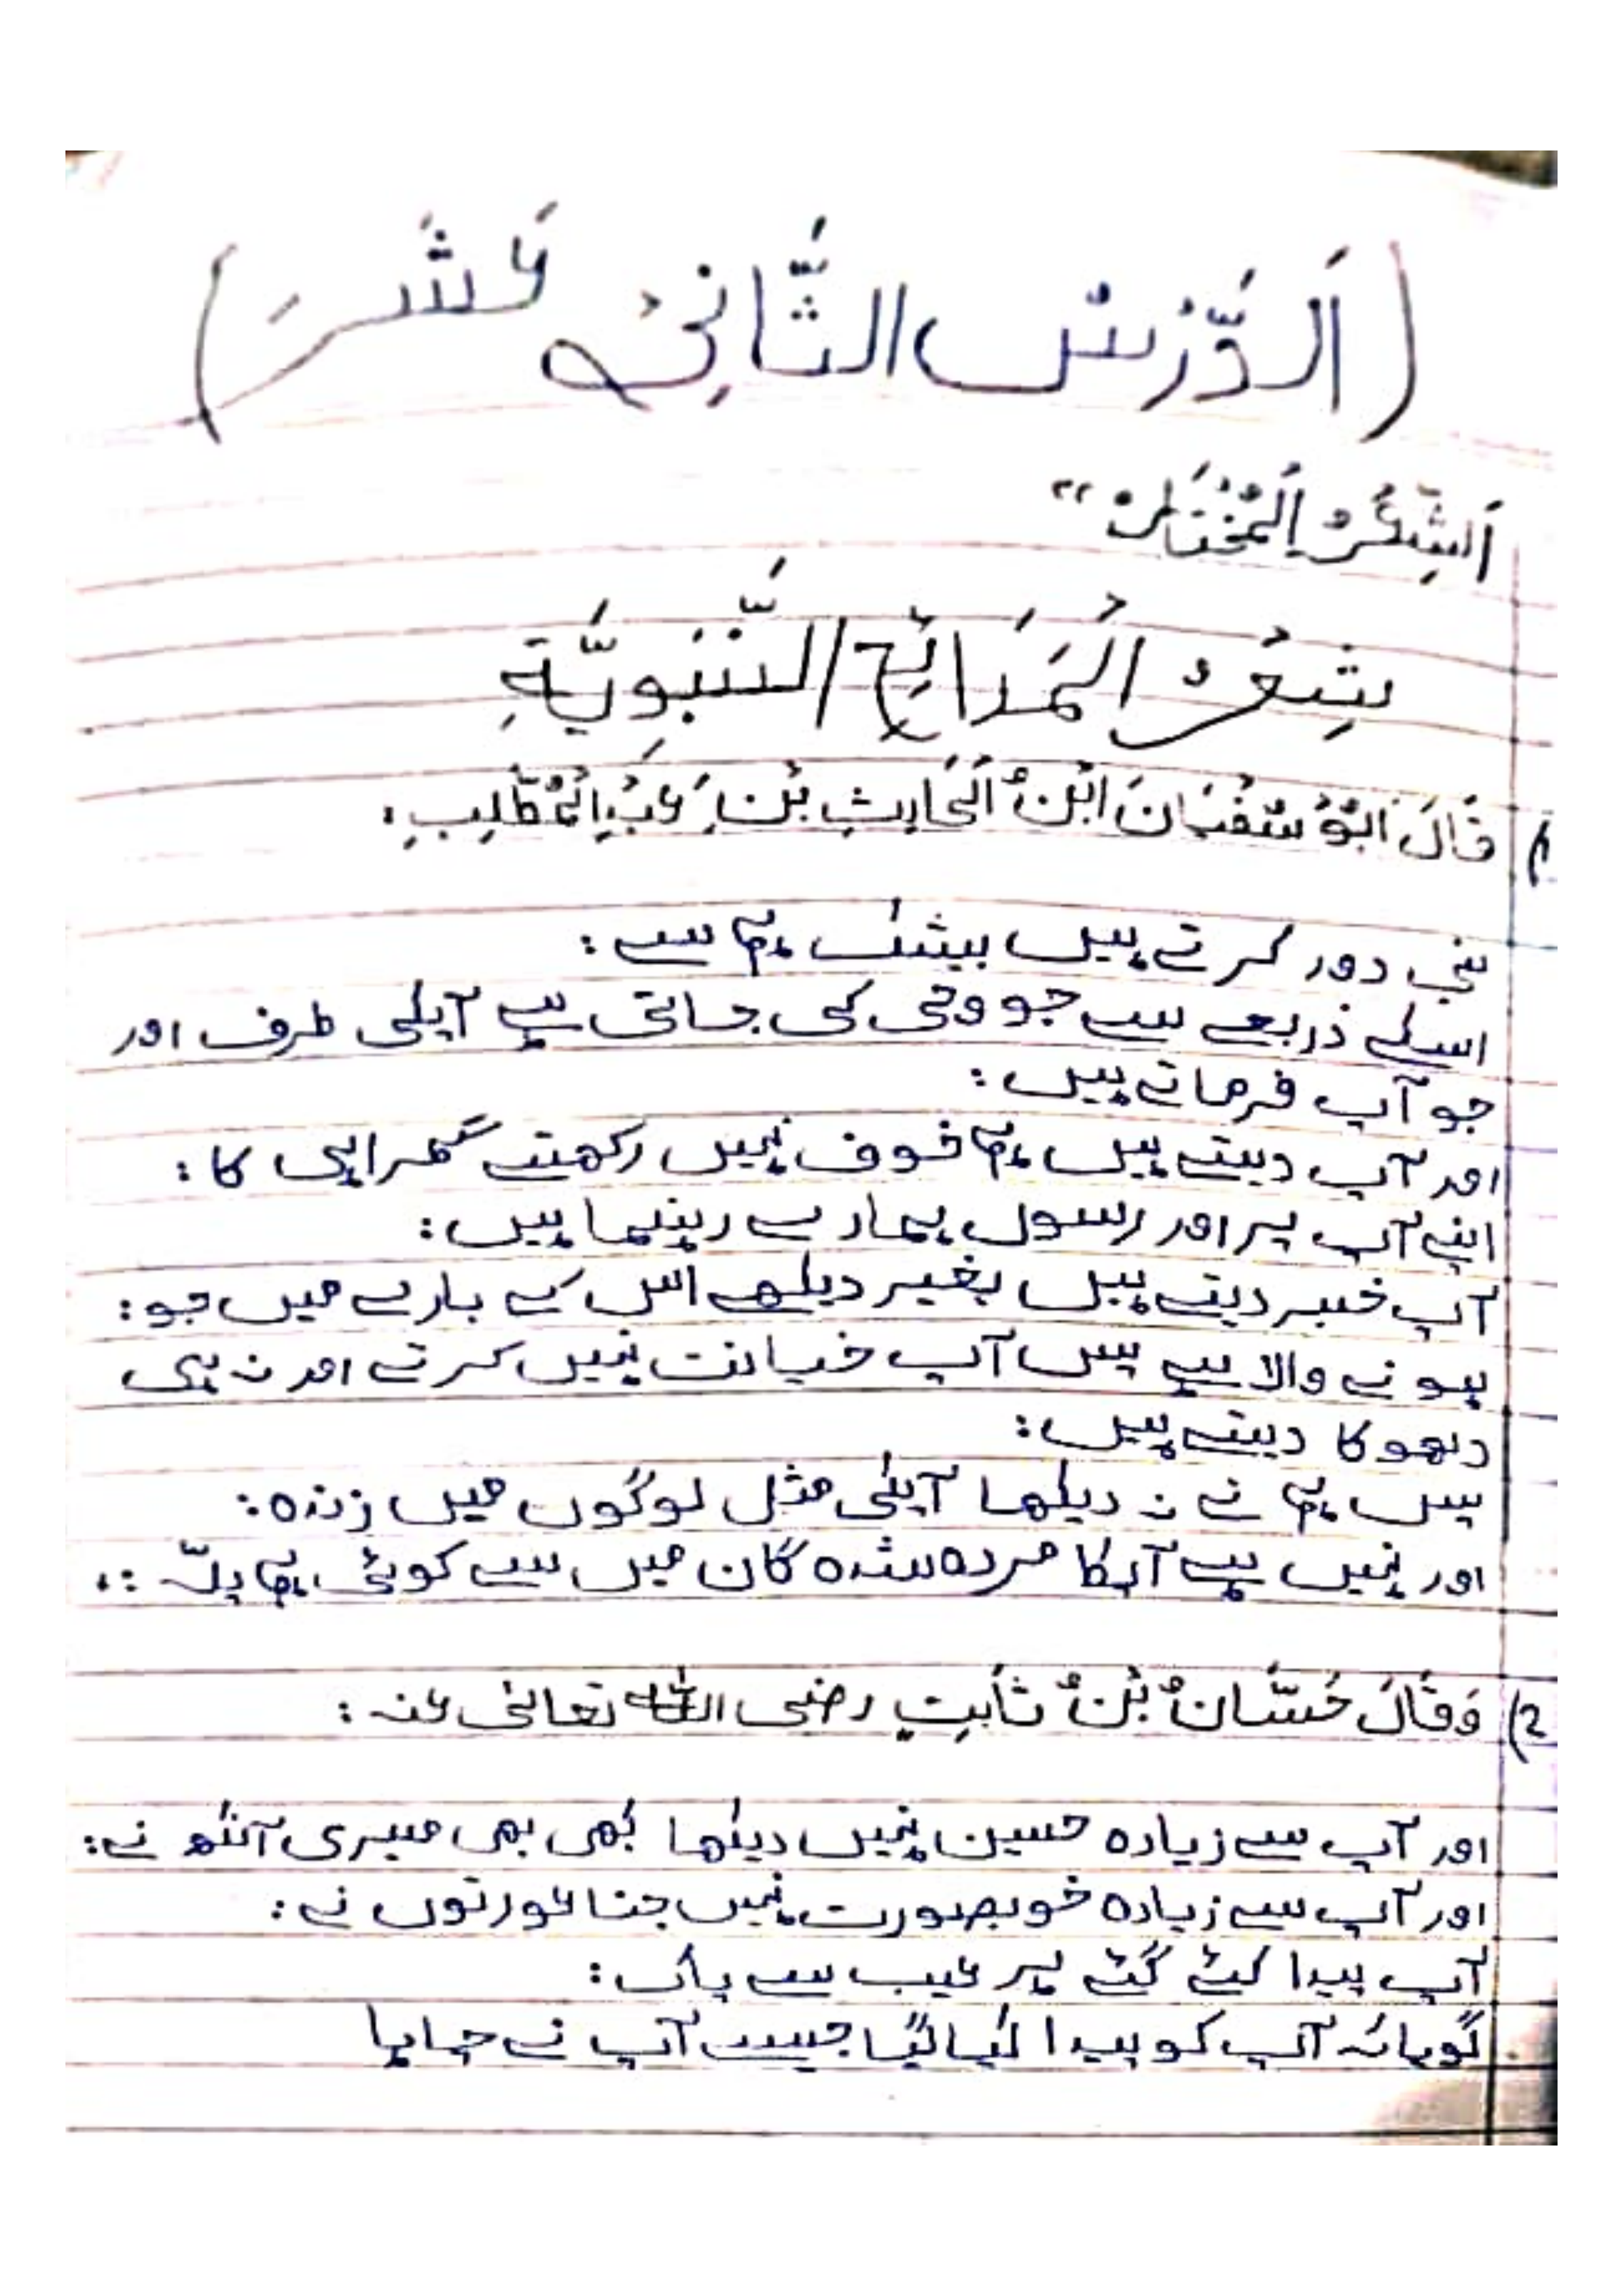 (اَلدَّرْسُ الثَّانِیْ عَشَرَ)
اَلشِّعْرُ الْمُخْتَارُ"
شِعْرُ الْمَدَائِحِ النَّبَوِيَّةِ
1) قَالَ اَبُوْ سُفْيَانَ ابْنُ الْحَارِثِ بْنِ عَبْدِ الْمُطَّلِبِ:
نبی دور کرتے ہیں بیشک ہم سے:
اسکے ذریعے سے جو وحی کی جاتی ہے آپکی طرف اور
جو آپ فرماتے ہیں:
اور آپ دیتے ہیں ہم خوف نہیں رکھتے گمراہی کا:
اپنے آپ پر اور رسول ہمارے رہنما ہیں:
آپ خبر دیتے ہیں بغیر دیکھے اس کے بارے میں جو:
ہونے والا ہے پس آپ خیانت نہیں کرتے اور نہ ہی
دھوکا دیتے ہیں:
پس ہم نے نہ دیکھا آپکی مثل لوگوں میں زندہ:
اور نہیں ہے آپکا مردہ شدہ گان میں سے کوئی ہم پلّہ:
2) وَقَالَ حَسَّانُ بْنُ ثَابِتٍ رضی اللہ تعالیٰ عنہ:
اور آپ سے زیادہ حسین نہیں دیکھا کبھی بھی میری آنکھ نے:
اور آپ سے زیادہ خوبصورت نہیں جنا عورتوں نے:
آپ پیدا کیئے گئے ہر عیب سے پاک:
گویا کہ آپ کو پیدا کیا گیا جیسے آپ نے چاہا